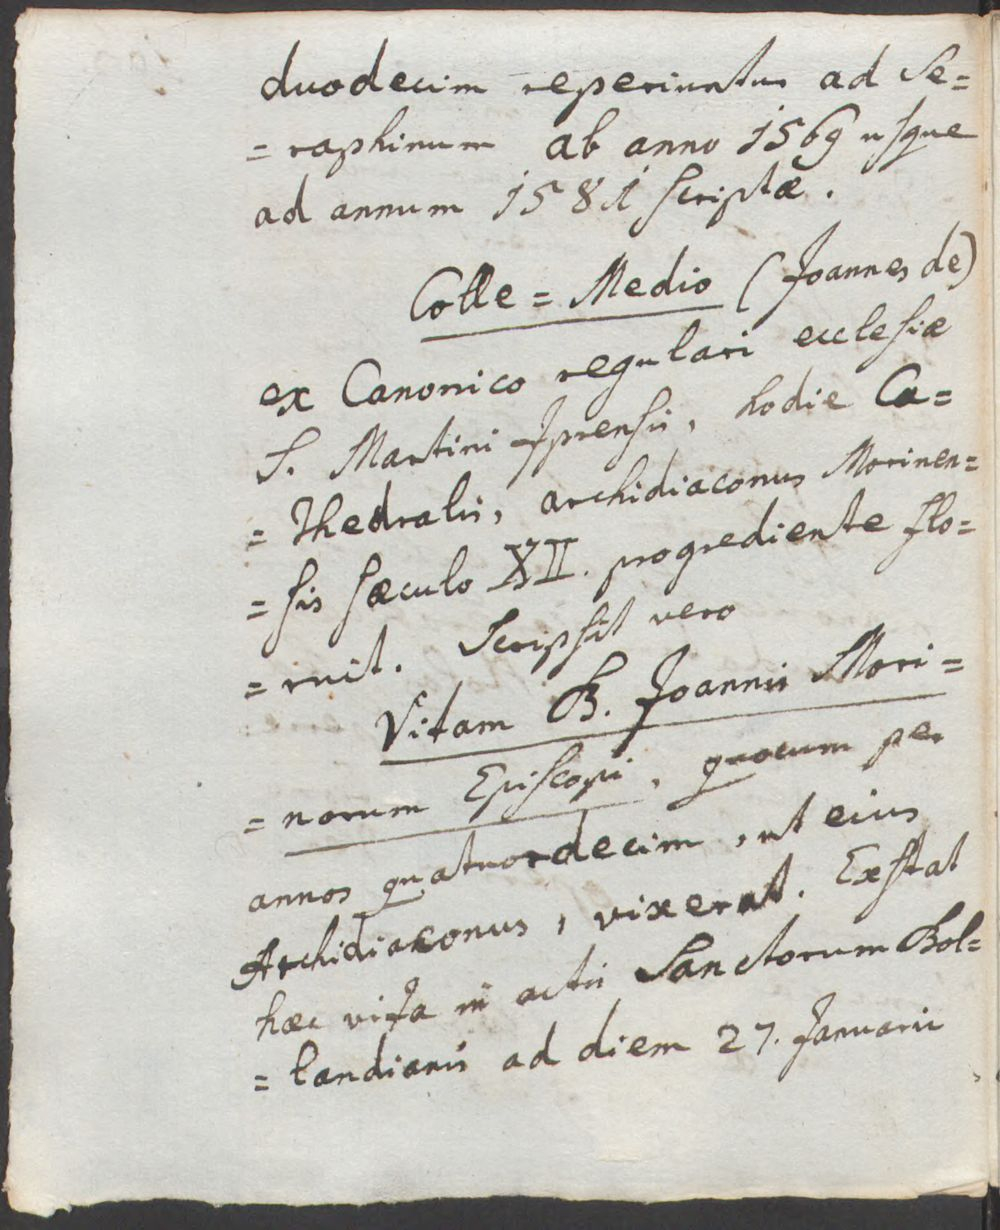 duodecim reperiuntur ad Se=
= raphinum ab anno 1569 usque
ad annum 1581 scriptæ.
Colle = Medio (Joannes de)
ex Canonico regulari ecclesiæ
S. Martini Iprensis, hodie Ca=
= thedralis, archidiaconus Morinen=
= sis sæculo XII. progrediente flo=
= ruit. Scripsit vero
Vitam B. Joannis Mori=
= norum Episcopi, quocum per
annos quatuordecim, ut eius
Archidiaconus, vixerat. Exstat
hæc vita in actis Sanctorum Bol=
= landianis ad diem 27. Januarii